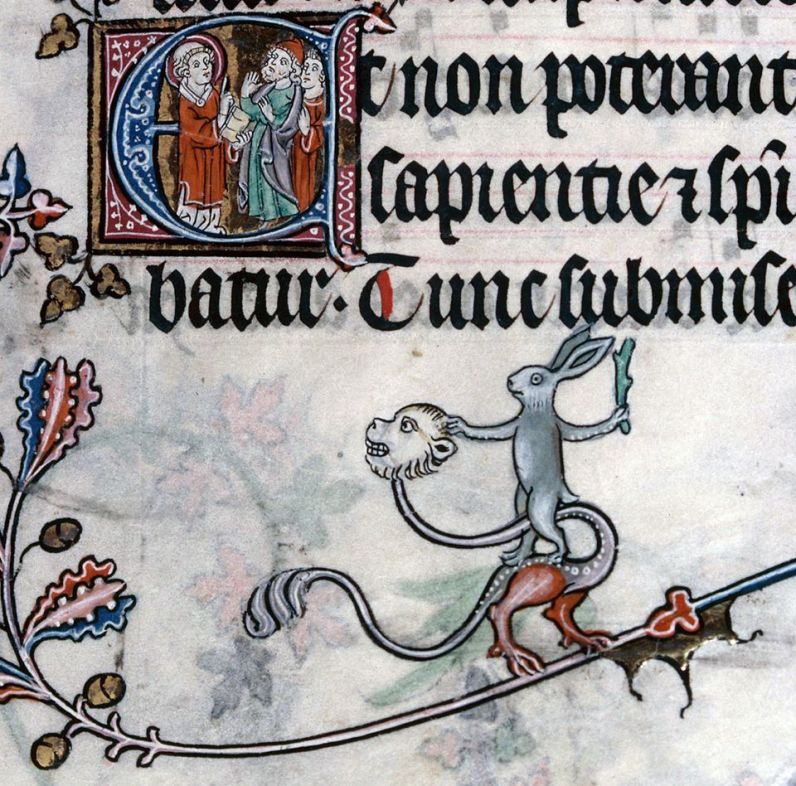 Et non poterant
sapientie ⁊ sp̄i
batur. Tunc submise